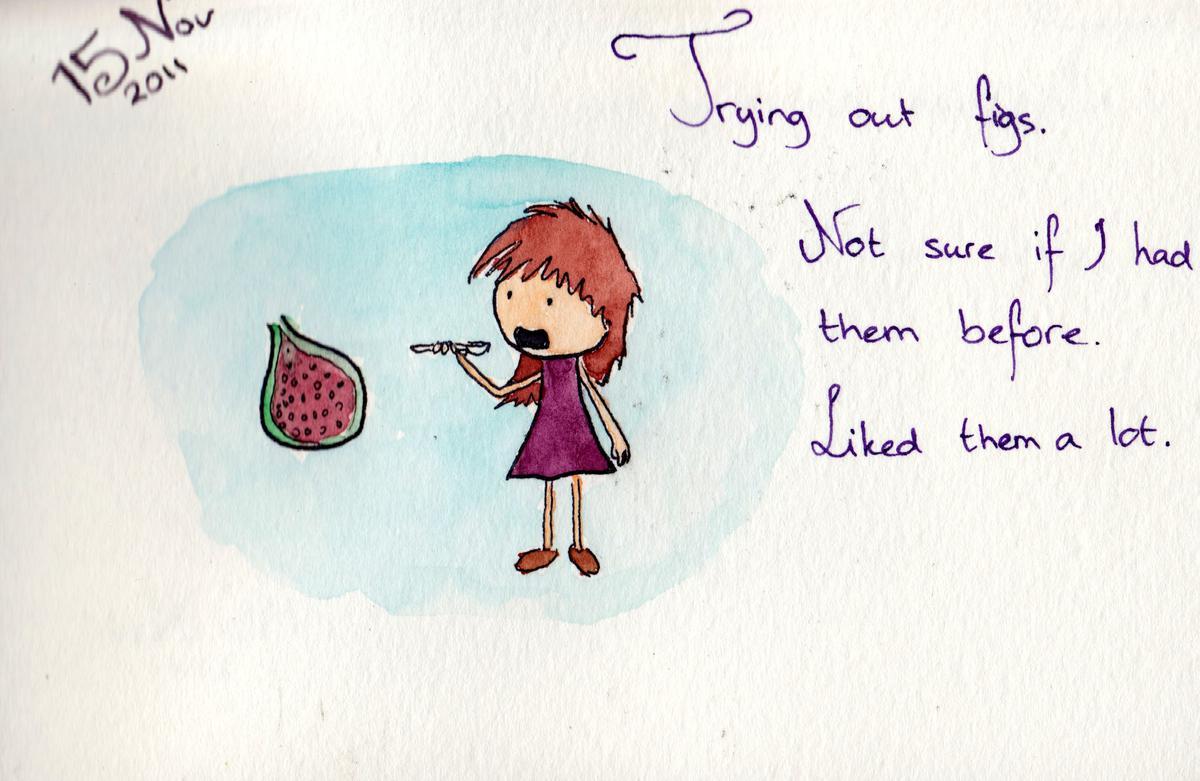 15 Nov
2011
Trying out figs.
Not sure if I had
them before.
Liked them a lot.